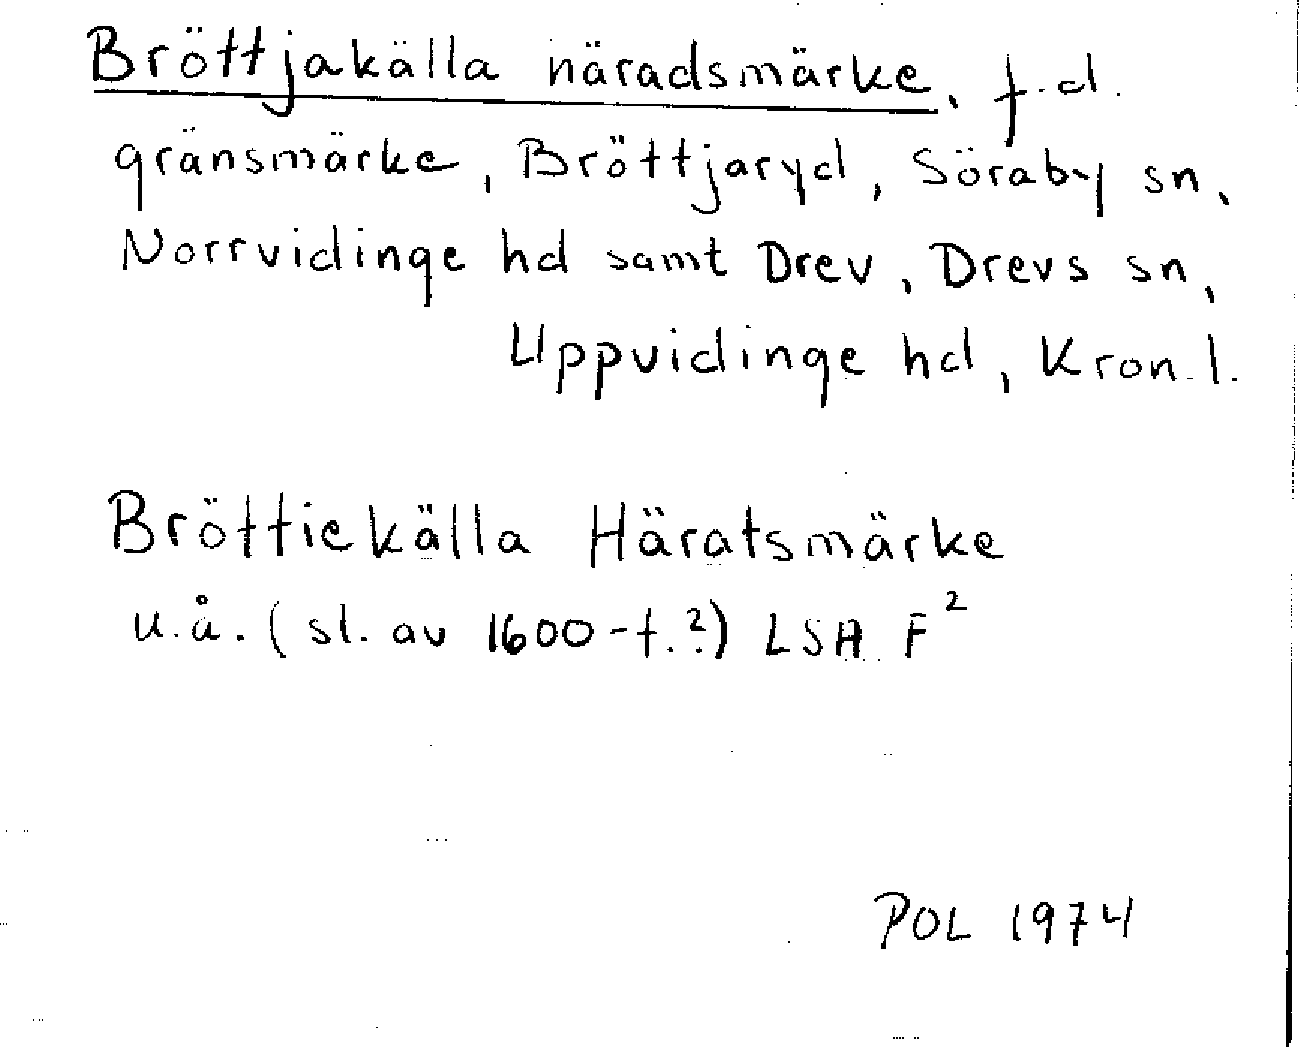 Bröttjakälla häradsmärke, f.d.
gränsmärke, Bröttjaryd, Söraby sn,
Norrvidinge hd samt Drev, Drevs sn,
Uppvidinge hd, Kron. l.
Bröttiekälla Häratsmärke
u.å. (sl. av 1600-t.?) LSA F²
POL 1974